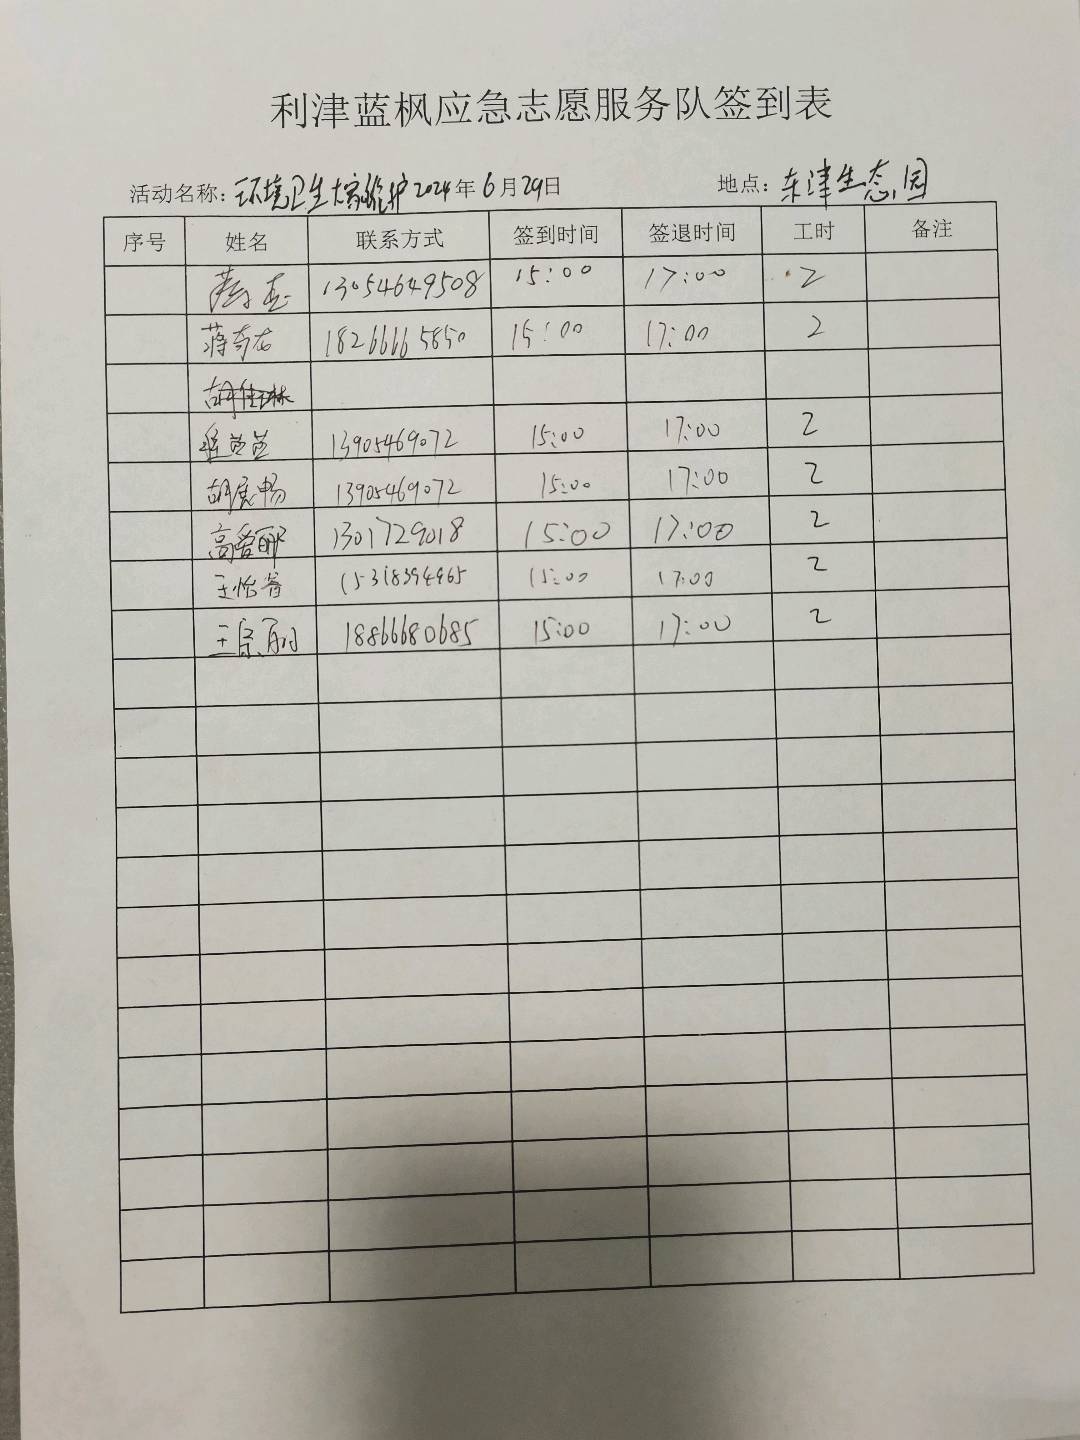 利津蓝枫应急志愿服务队签到表
活动名称：环境卫生大家维护 2024年6月29日 地点：东津生态园
序号 姓名 联系方式 签到时间 签退时间 工时 备注
13054649508 15:00 17:00 2
蒋奇右 18266665850 15:00 17:00 2
胡佳琳
程芭芭 13905469072 15:00 17:00 2
胡展畅 13905469072 15:00 17:00 2
高爱丽 1301729018 15:00 17:00 2
王怡睿 15318394965 15:00 17:00 2
王景丽 18866680685 15:00 17:00 2